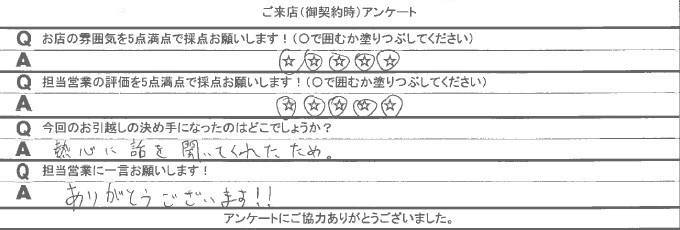 ご来店(御契約時)アンケート
Q お店の雰囲気を5点満点で採点お願いします！(〇で囲むか塗りつぶしてください)
A ☆☆☆☆☆
Q 担当営業の評価を5点満点で採点お願いします！(〇で囲むか塗りつぶしてください)
A ☆☆☆☆☆
Q 今回のお引越しの決め手になったのはどこでしょうか？
A 熱心に話を聞いてくれたため。
Q 担当営業に一言お願いします！
A ありがとうございます!!
アンケートにご協力ありがとうございました。